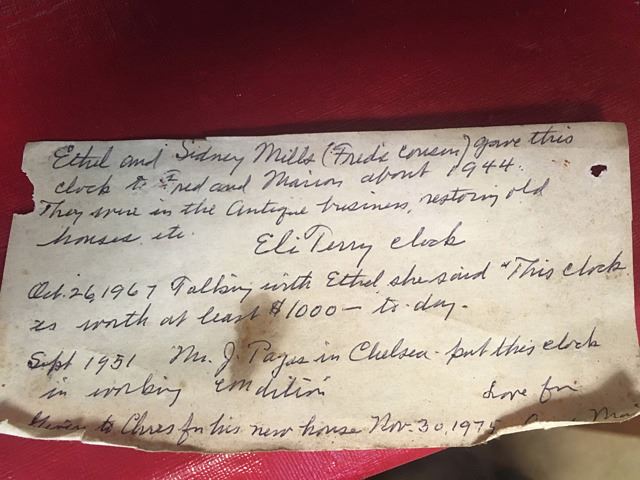 Ethel and Sidney Mills (Fred's cousin) gave this
clock to Fred and Marion about 1944.
They were in the Antique business, restoring old
houses, etc.
Eli Terry clock
Oct. 26, 1967 Talking with Ethel she said "This clock
is worth at least $1000— to-day.
Sept 1951 Mr. J. in Chelsea - put this clock
in working condition
Given to Chris for his new house Nov. 30, 1975
Love